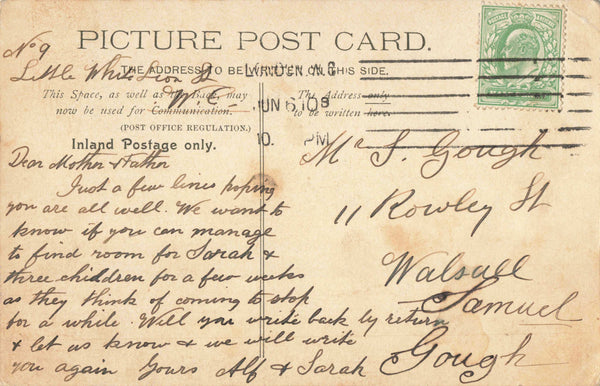 No 9
PICTURE POST CARD.
Little White Lion St
THE ADDRESS TO BE WRITTEN ON THIS SIDE.
W.C.
This Space, as well as the Back, may
now be used for Communication.
(POST OFFICE REGULATION.)
The Address only
to be written here.
Inland Postage only.
JUN 6 10
10. PM
Dear Mother & Father
Just a few lines hoping
you are all well. We want to
know if you can manage
to find room for Sarah &
three children for a few weeks
as they think of coming to stop
for a while. Will you write back by return
& let us know & we will write
you again Yours Alf & Sarah
Mr S. Gough
11 Rowley St
Walsall
Samuel
Gough